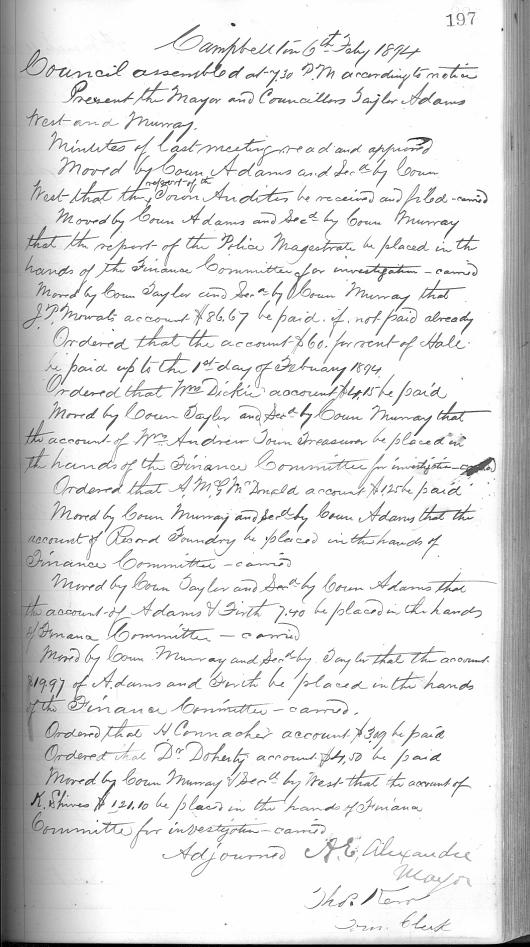 197
Campbellton 6th Feby 1894
Council assembled at 7.30 P.M according to notice
Present the Mayor and Councillors Taylor Adams
West and Murray.
Minutes of last meeting read and approved
Moved by Coun Adams and Secd by Coun
West that the report of the Town Auditor be received and filed - carried
Moved by Coun Adams and Secd by Coun Murray
that the report of the Police Magistrate be placed in the
hands of the Finance Committee for investigation - carried
Moved by Coun Taylor and Secd by Coun Murray that
J.P. Mowat's account $86.67 be paid if not paid already
Ordered that the account $60. for rent of Hall
be paid up to the 1st day of February 1894
Ordered that Wm Dickie account $4.15 be paid
Moved by Coun Taylor and Secd by Coun Murray that
the account of Wm Andrew Town Treasurer be placed in
the hands of the Finance Committee for investigation - carried
Ordered that A. McG McDonald account $125 be paid
Moved by Coun Murray and Secd by Coun Adams that the
account of Record Foundry be placed in the hands of
Finance Committee - carried
Moved by Coun Taylor and Secd by Coun Adams that
the account of Adams & Firth 7.40 be placed in the hands
of Finance Committee - carried
Moved by Coun Murray and Secd by Taylor that the account
$19.97 of Adams and Firth be placed in the hands
of the Finance Committee - carried.
Ordered that H Connacher account be paid
Ordered that Dr Doherty account $4.50 be paid
Moved by Coun Murray & Secd by West that the account of
K. Shives $121.10 be placed in the hands of Finance
Committee for investigation - carried
Adjourned A.E. Alexander
Mayor
Thos. Kerr
Clerk